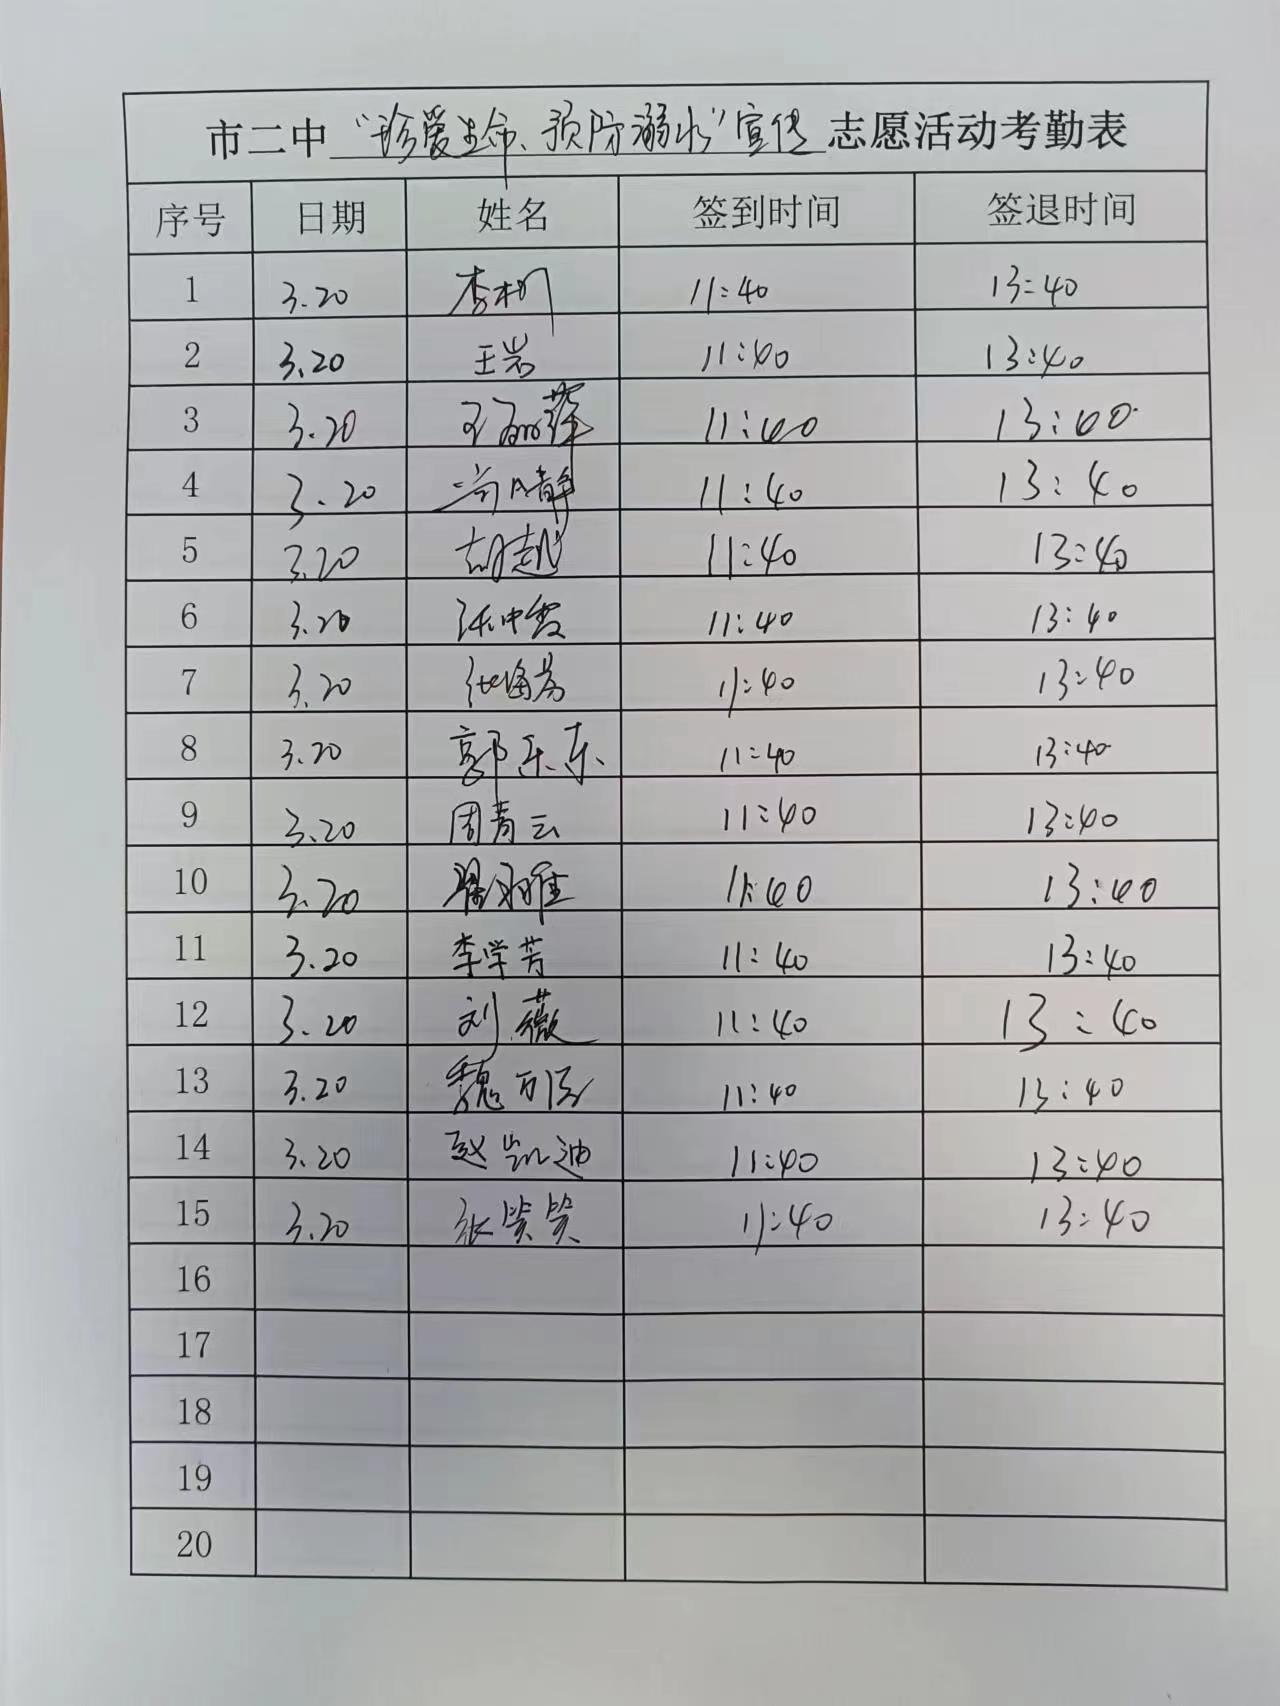 市二中“珍爱生命、预防溺水”宣传志愿活动考勤表
序号 日期 姓名 签到时间 签退时间
1 3.20 李 11:40 13:40
2 3.20 王岩 11:40 13:40
3 3.20 王 11:40 13:40
4 3.20 11:40 13:40
5 3.20 胡越 11:40 13:40
6 3.20 张中霞 11:40 13:40
7 3.20 11:40 13:40
8 3.20 郭乐东 11:40 13:40
9 3.20 周青云 11:40 13:40
10 3.20 11:40 13:40
11 3.20 李学芳 11:40 13:40
12 3.20 刘薇 11:40 13:40
13 3.20 魏 11:40 13:40
14 3.20 赵凯迪 11:40 13:40
15 3.20 张笑笑 11:40 13:40
16
17
18
19
20